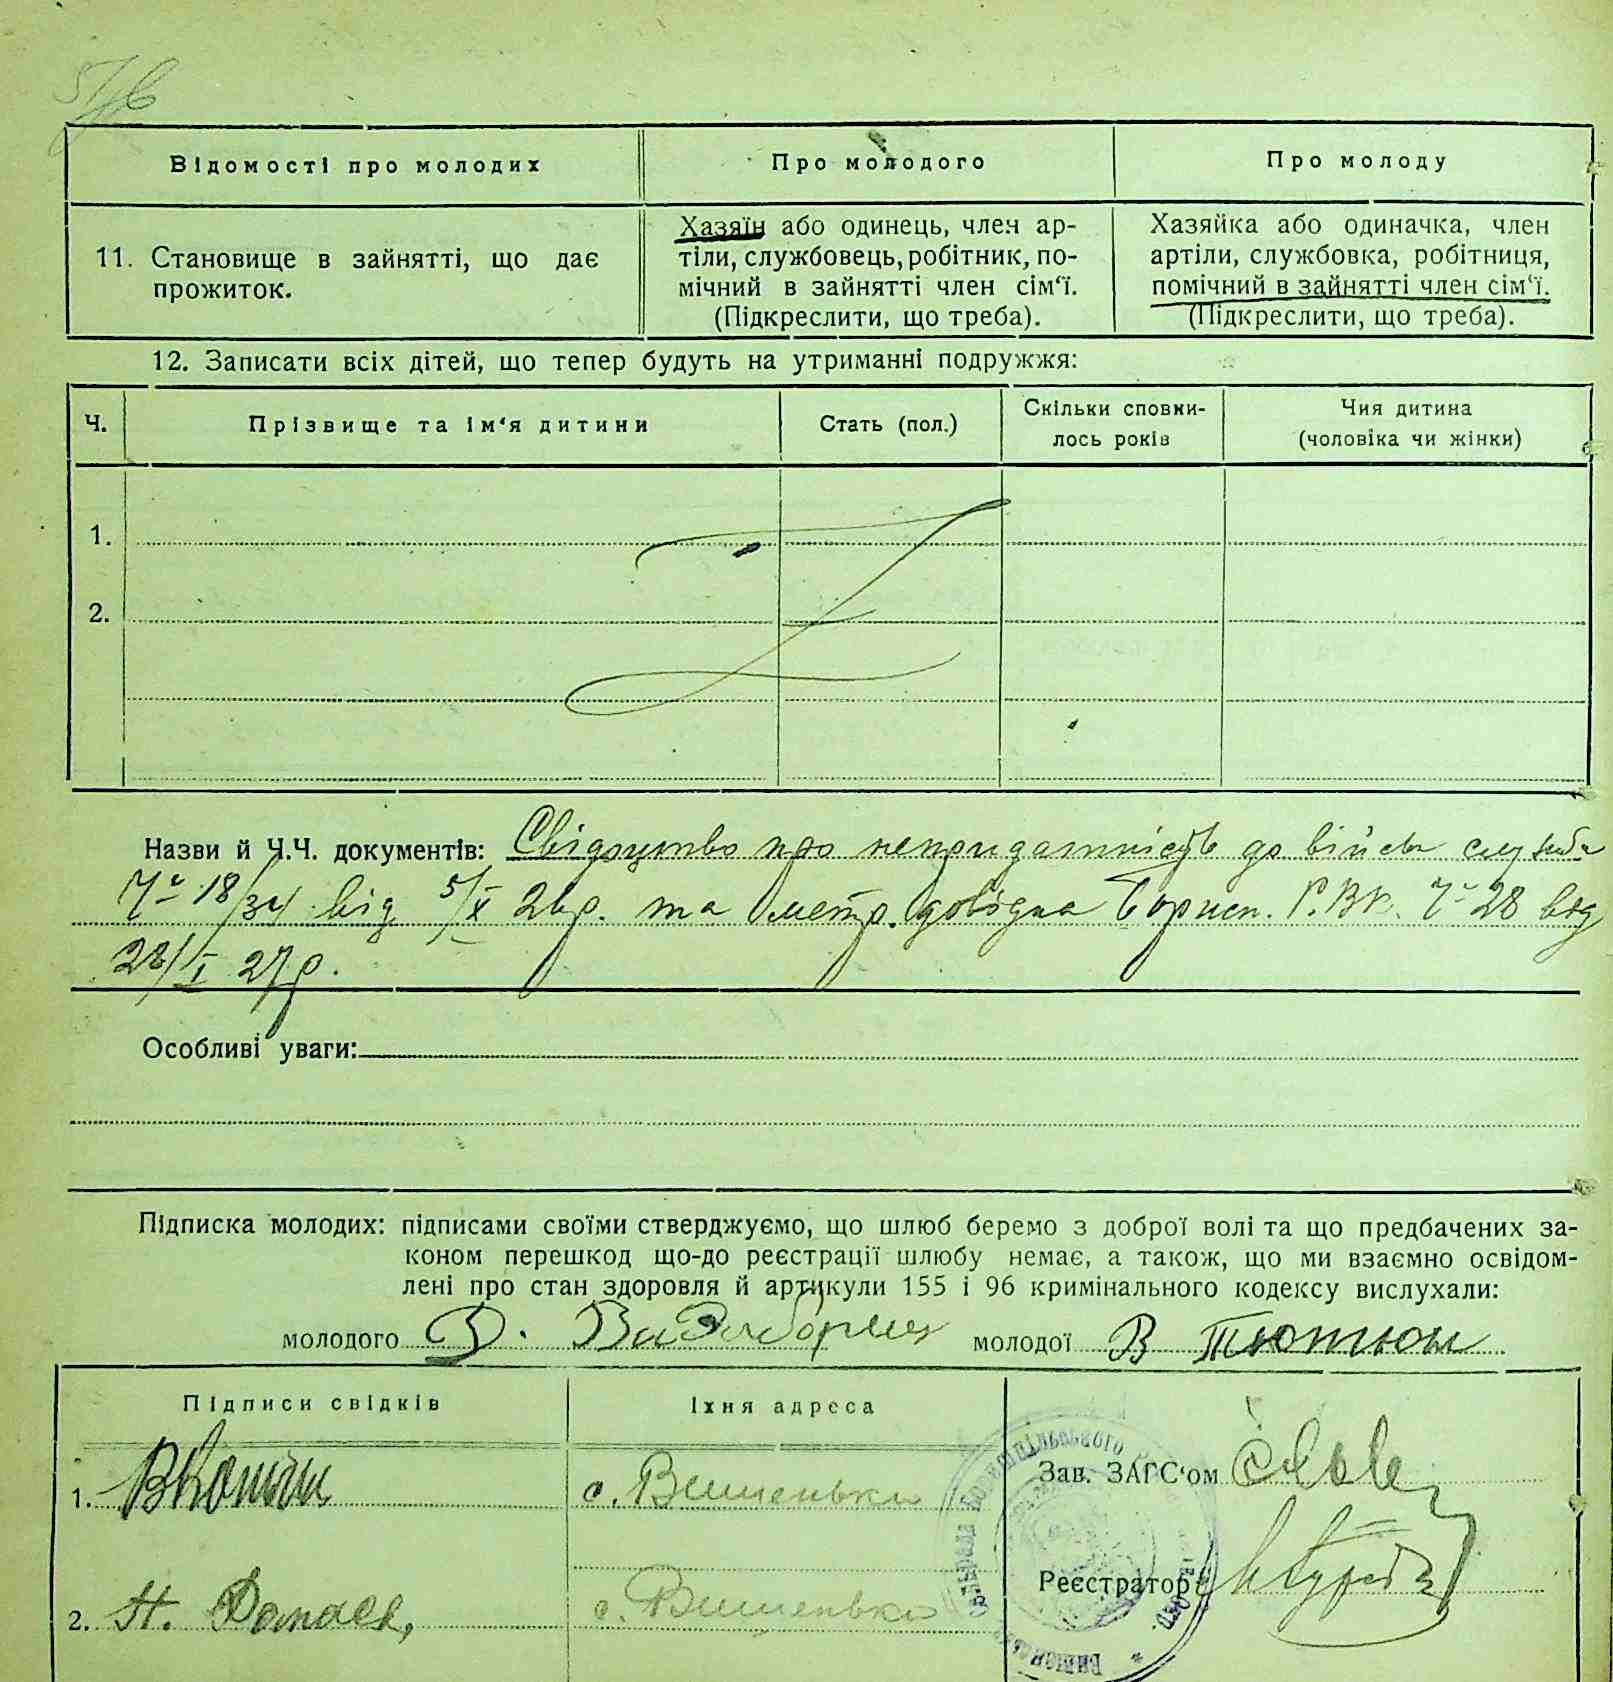 Відомості про молодих
Про молодого
Про молоду
11. Становище в зайнятті, що дає
прожиток.
Хазяїн або одинець, член ар-
тіли, службовець, робітник, по-
мічний в зайнятті член сім‘ї.
(Підкреслити, що треба).
Хазяйка або одиначка, член
артіли, службовка, робітниця,
помічний в зайнятті член сім‘ї.
(Підкреслити, що треба).
12. Записати всіх дітей, що тепер будуть на утриманні подружжя:
Ч.
Прізвище та ім‘я дитини
Стать (пол.)
Скільки сповни-
лось років
Чия дитина
(чоловіка чи жінки)
1.
2.
Назви й Ч.Ч. документів: Свідоцтво про непридатність до військ служби
18/34 від 5/X 26р. та метр. довідка Борисп. Р.В.К. Ч 28 від
28/I 27р.
Особливі уваги:
Підписка молодих: підписами своїми стверджуємо, що шлюб беремо з доброї волі та що предбачених за-
коном перешкод що-до реєстрації шлюбу немає, а також, що ми взаємно освідом-
лені про стан здоровля й артикули 155 і 96 кримінального кодексу вислухали:
молодого молодої В Тютюн
Підписи свідків
Їхня адреса
1. с. Вишеньки
Зав. ЗАГС‘ом
2. с. Вишеньки
Реєстратор